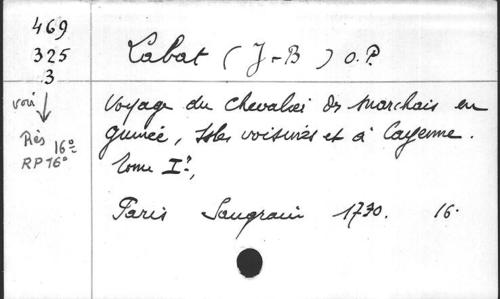 469
325
3
voir
Rés 16°
RP 16°
Labat (J-B) O.P.
Voyage du Chevalier des Marchais en
guinée, Isles voisines et à Cayenne.
Tome Ier,
Paris Saugrain 1730. 16.